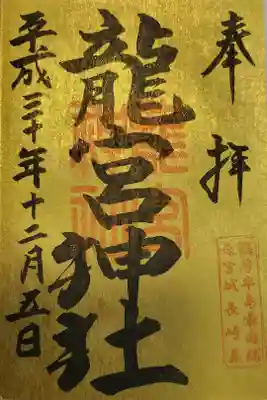 奉拝
龍宮神社
平成三十年十二月五日